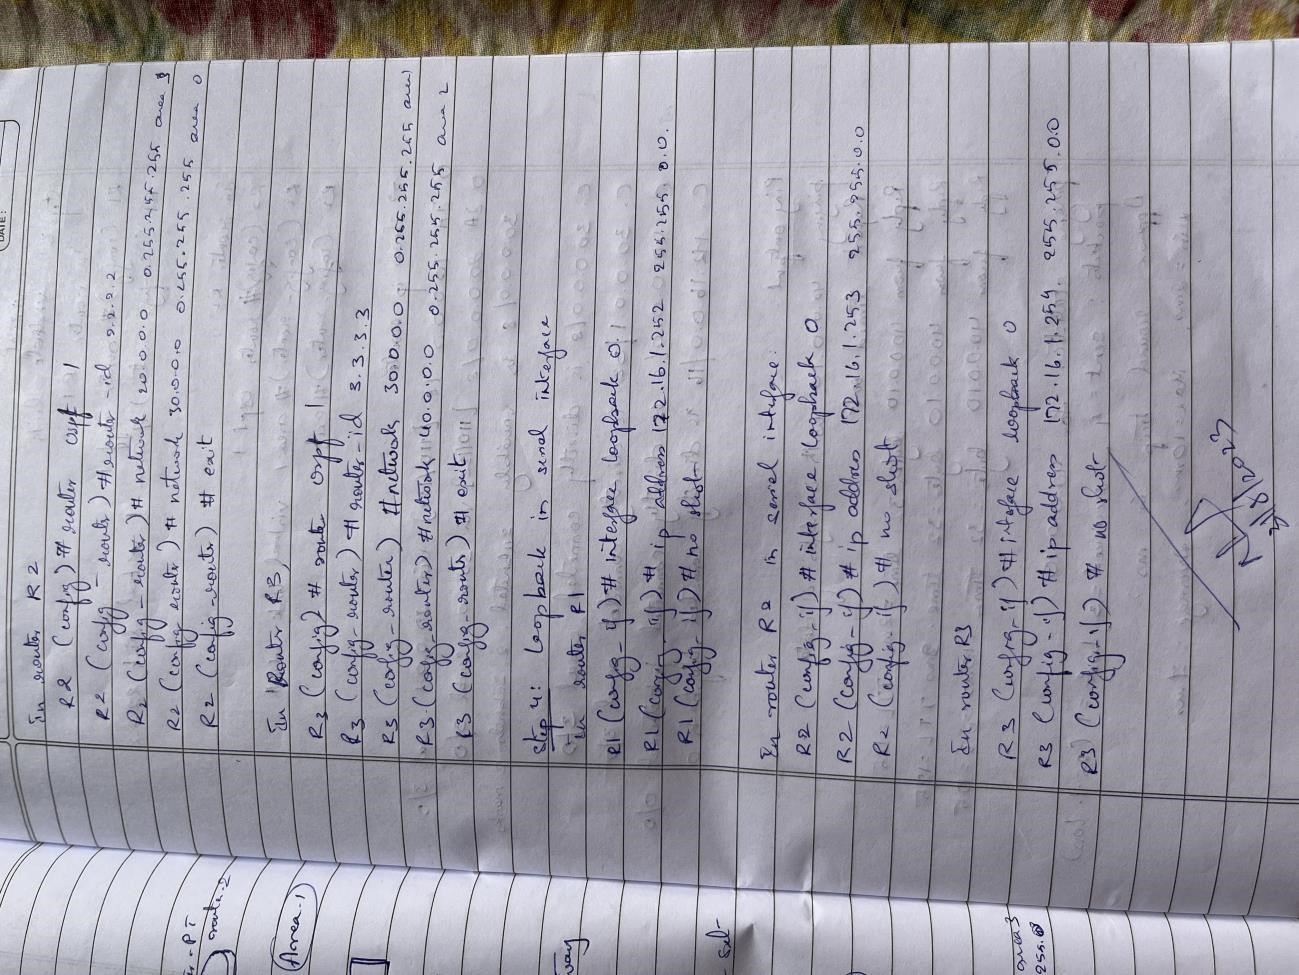 DATE:
In router R2
R2 (config) # router ospf 1
R2 (config-router) # router-id 2.2.2.2
R2 (config-router) # network 20.0.0.0 0.255.255.255 area
R2 (config-router) # network 30.0.0.0 0.255.255.255 area 0
R2 (config-router) # exit
In Router R3,
R3 (config) # router ospf 1
R3 (config-router) # router-id 3.3.3.3
R3 (config-router) # network 30.0.0.0 0.255.255.255 area
R3 (config-router) # network 40.0.0.0 0.255.255.255 area 2
R3 (config-router) # exit
Step 4: Loopback in serial interface
In router R1
R1 (config-if) # interface loopback 0
R1 (config-if) # ip address 172.16.1.252 255.255.0.0.
R1 (config-if) # no shut
In router R2 in serial interface:
R2 (config-if) # interface loopback 0
R2 (config-if) # ip address 172.16.1.253 255.255.0.0
R2 (config-if) # no shut
In router R3
R3 (config-if) # inteface loopback 0
R3 (config-if) # ip address 172.16.1.254 255.255.0.0
R3 (config-if) # no shut
-PT
Area.1
way
area 3
255.0